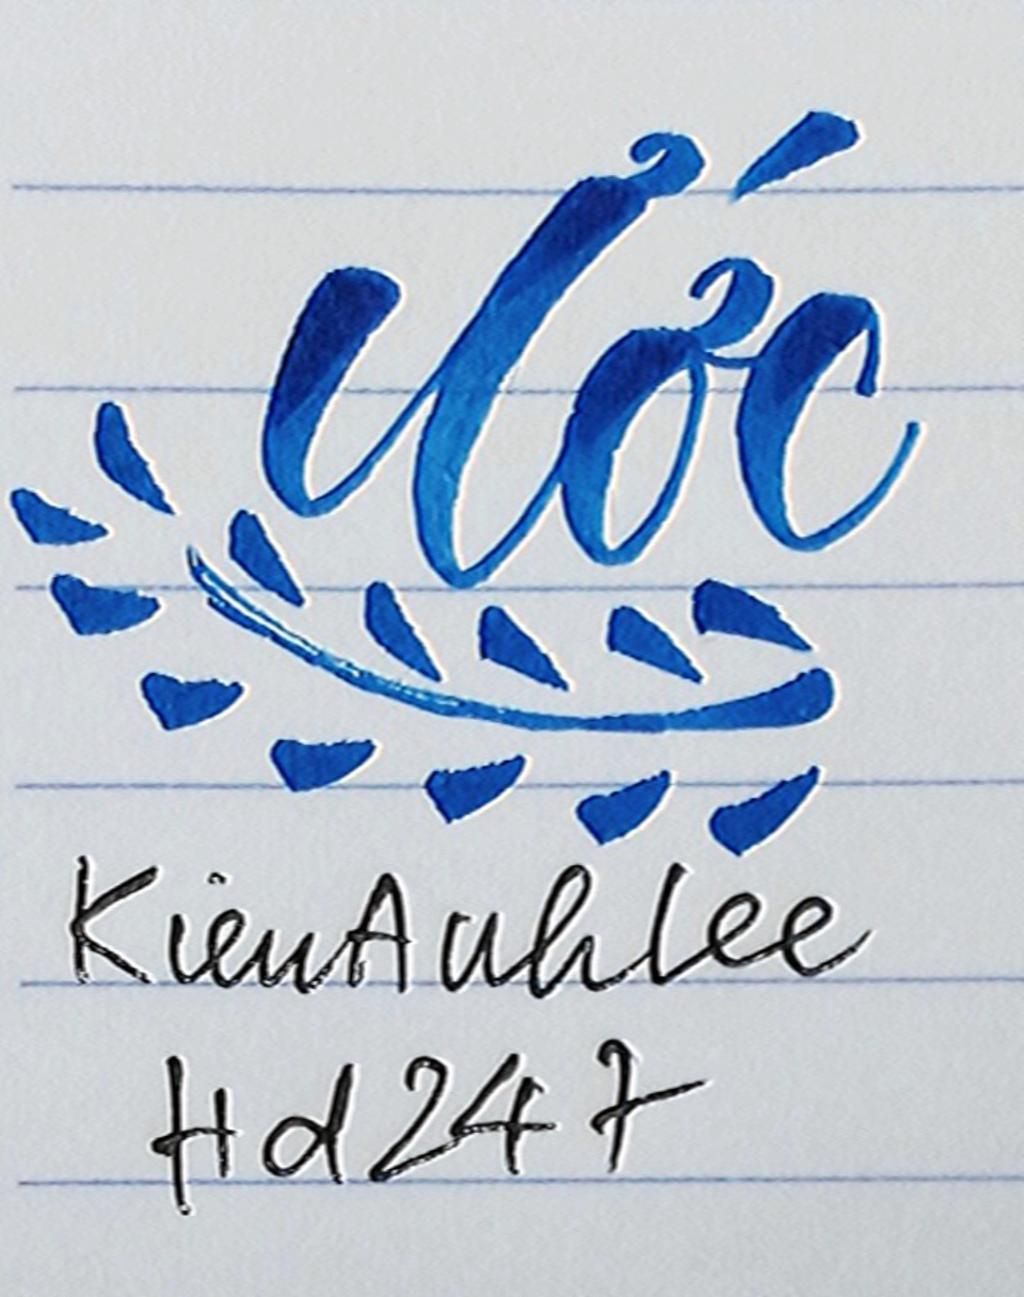 Ước
KiênAnhlee
Hd247